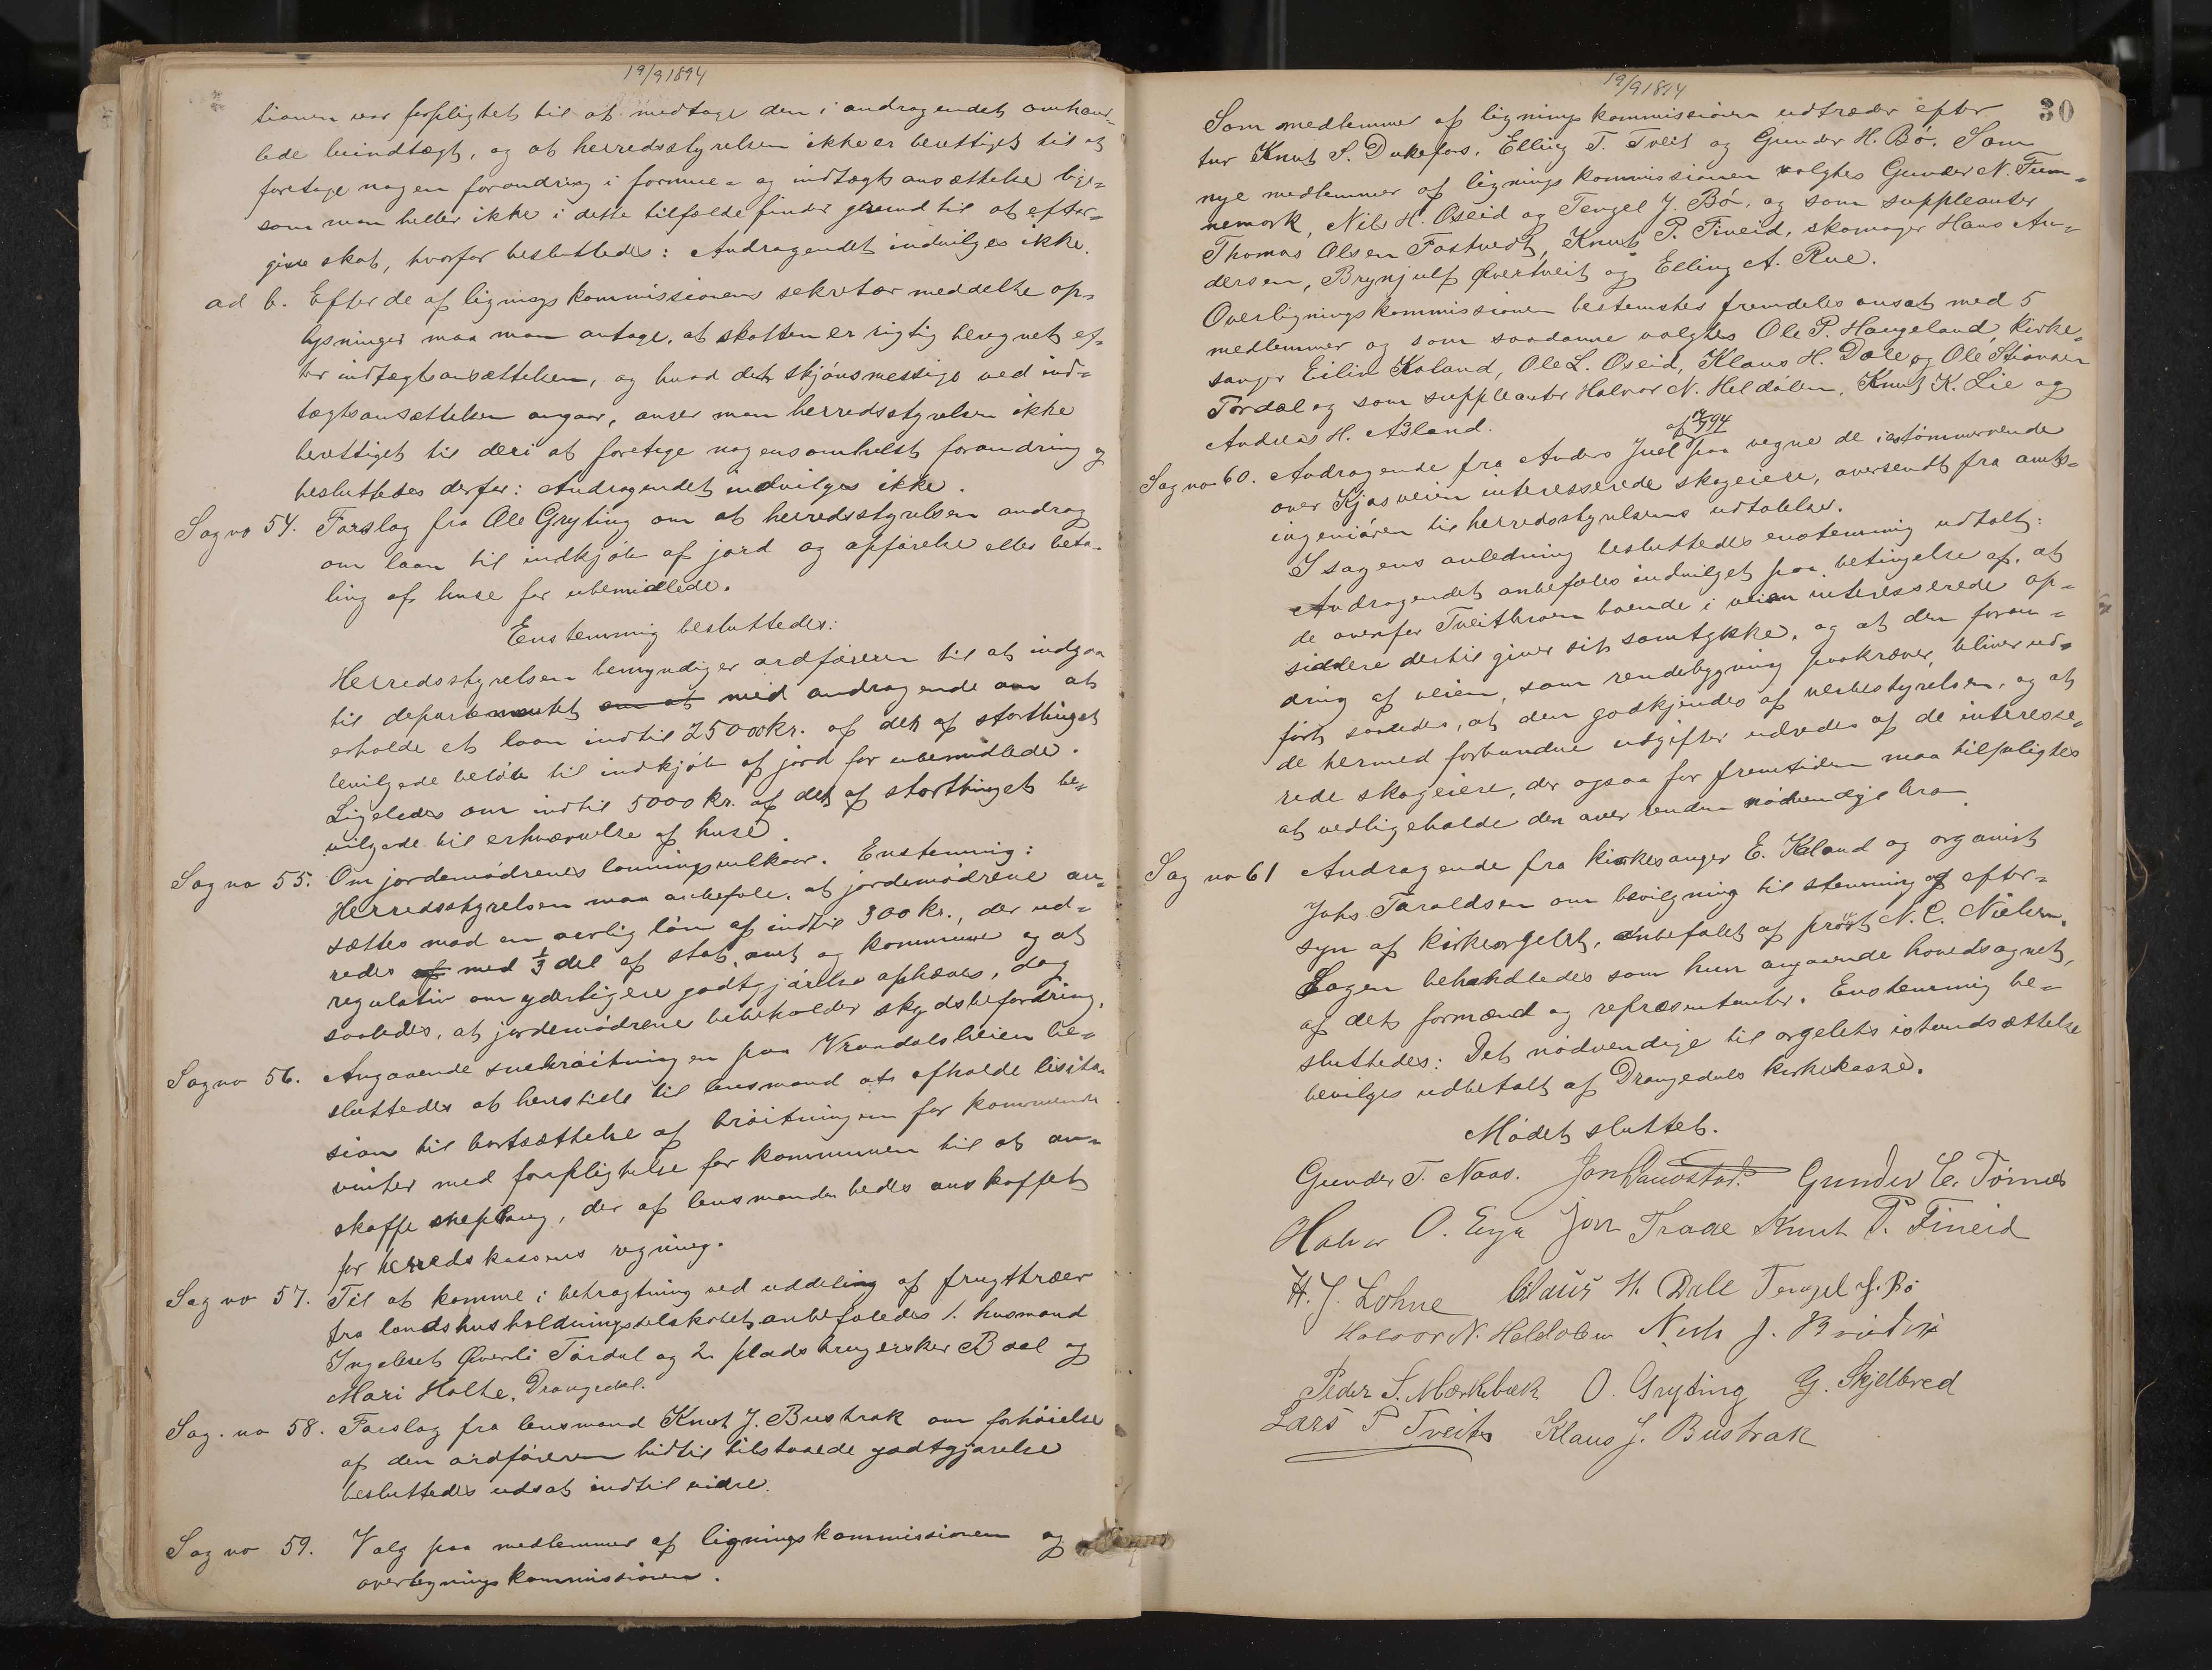 19/9 1894
sionen var forpligtet til at medtage den i andragendet omhand-
lede leiindtægt, og at herredsstyrelsen ikke er berettiget til at
foretage nogen forandring i formue- og indtægtsansættelse lige-
som man heller ikke i dette tilfælde finder grund til at efter-
give skat, hvorfor besluttedes: Andragendet indvilges ikke.
ad b. Efter de af ligningskommissionens sekretær meddelte op-
lysninger maa man antage, at skatten er rigtig beregnet ef-
ter indtægtsansættelsen, og hvad det skjönsmessige ved ind-
tægtsansættelsen angaar, anser man herredsstyrelsen ikke
berettiget til deri at foretage nogensomhelst forandring og
besluttedes derfor: Andragendet indvilges ikke.
Sag no 54. Forslag fra Ole Gryting om at herredsstyrelsen andrag
om laan til indkjöb af jord og opförelse eller beta-
ling af huse for ubemidlede.
Enstemmig besluttedes:
Herredsstyrelsen bemyndiger ordföreren til at indgaa
til departementet om at med andragende om at
erholde et laan indtil 25000 kr. af det af storthinget
bevilgede belöb til indkjöb af jord for ubemidlede.
Ligeledes om indtil 5000 kr. af det af storthinget be-
vilgede til erhvervelse af huse.
Sag no 55. Om jordemödrenes lönningsvilkaar. Enstemmig:
Herredsstyrelsen maa anbefale, at jordemödrene an-
sættes mod en aarlig lön af indtil 300 kr., der ud-
redes af med 1/3 del af stat, amt og kommune og at
regulativ om yderligere godtgjörelse ophæves, dog
saaledes, at jordemödrene beholder skydsbefordring.
Sag no 56. Angaaende snebröitningen paa Vraadalsheien be-
sluttedes at henstille til lensmand at afholde lisita-
sion til bortsættelse af bröitningen for kommende
vinter med forpligtelse for kommunen til at an-
skaffe sneplaug, der af lensmanden bedes anskaffet
for herredskassens regning.
Sag no 57. Til at komme i betragtning ved uddeling af frugttræer
fra landhusholdningsselskabet anbefaledes 1. husmand
Ingebret Øverli Tördal og 2 pladsbrugersker Boel og
Mari Holte, Drangedal.
Sag. no 58. Forslag fra lensmand Knut J. Bustrak om forhöielse
af den ordföreren hidtil tilstaaede godtgjörelse
besluttedes udsat indtil vidre.
Sag no 59. Valg paa medlemmer af ligningskommissionen og
overligningskommissionen.
19/9 1894
30
Som medlemmer af ligningskommissionen udtræder efter
tur Knut S. Dukefos, Elling T. Tveit og Gunder H. Bö. Som
nye medlemmer af ligningskommissionen valgtes Gunder N. Tum-
nemork, Nils H. Oseid og Tengel J. Bö, og som suppleanter
Thomas Olsen Fostvedt, Knut P. Fineid, skomager Hans An-
dersen, Brynjulf Övertveit og Elling A. Rue.
Overligningskommissionen bestemtes fremdeles ansat med 5
medlemmer og som saadanne valgtes Ole P. Haugeland, kirke-
sanger Eilin Kaland, Ole L. Oseid, Klaus H. Dale og Ole Stiansen
Tördal og som suppleanter Halvor N. Heldalen, Knut K. Lie og
Andreas H. Aasland.
Sag no 60. Andragende fra Anders Juel af 94 paa vegne de i tömmerrende
over Kjosveien interesserede skogeiere, oversendt fra amts-
ingeniören til herredsstyrelsens udtalelse.
I sagens anledning besluttedes enstemmig udtalt:
Andragendet anbefales indvilget paa betingelse af, at
de ovenfor Tveitkroen boende i veien interesserede op-
siddere dertil giver sit samtykke, og at den foran-
dring af veien, som rendebygning paakræver, bliver ud-
fört saaledes, at den godkjendes af veibestyrelsen, og at
de hermed forbundne udgifter udredes af de interesse-
rede skogeiere, der ogsaa for fremtiden maa tilpligtes
at vedligeholde den over renden nödvendige bro.
Sag no 61 Andragende fra kirkesanger E. Kaland og organist
Johs. Taraldsen om bevilgning til stemning og efter-
syn af kirkeorgelet, anbefalet af provst N. C. Nielsen.
Sagen behandledes som kun angaaende hovedsognet,
af dets formænd og repræsentanter. Enstemmig be-
sluttedes: Det nödvendige til orgelets istandsættelse
bevilges udbetalt af Drangedals kirkekasse.
Mödet sluttet.
Gunder T. Naas. Gunder E. Törnes
Halvor O. Eeg Jon Traae Knut P. Fineid
H. J. Lohne Claus H. Dale Tengel J. Bö
Halvor N. Heldalen J.
Peder S. Mærkebæk O. Gryting G. Skjelbred
Lars P Tveit Klaus J. Bustrak